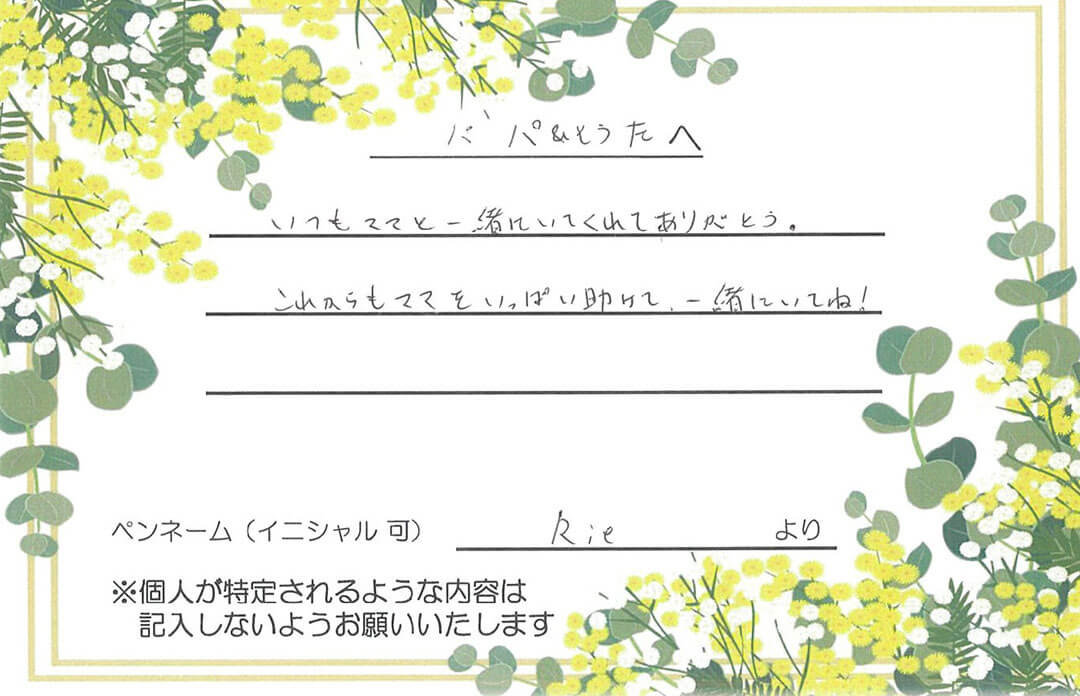 パパ&そうたへ
いつもママと一緒にいてくれてありがとう。
これからもママをいっぱい助けて、一緒にいてね!
ペンネーム(イニシャル 可) Rie より
※個人が特定されるような内容は
記入しないようお願いいたします